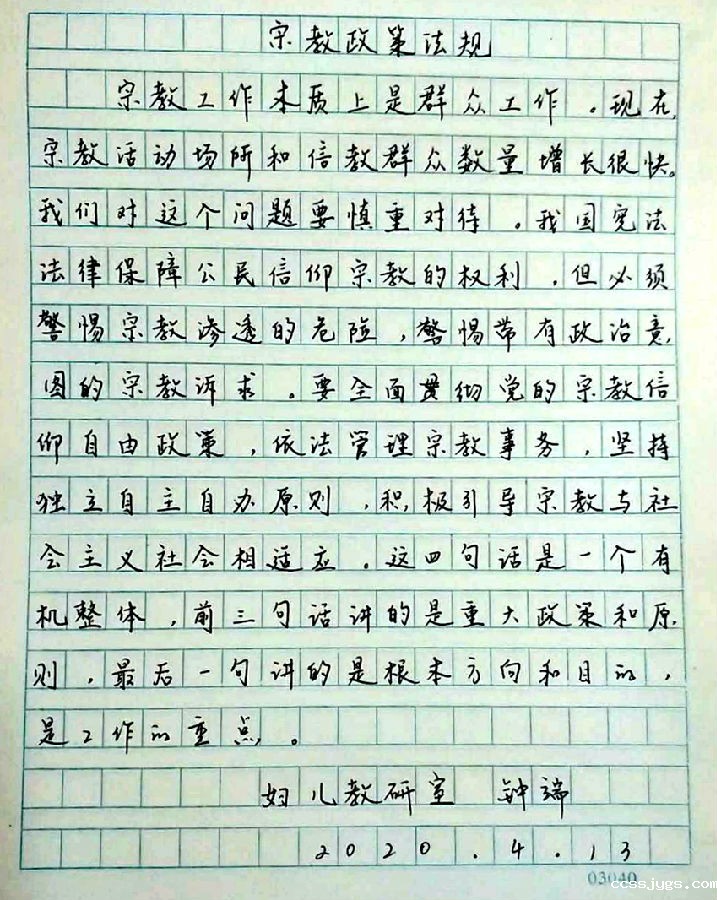 宗教政策法规
宗教工作本质上是群众工作。现在,
宗教活动场所和信教群众数量增长很快。
我们对这个问题要慎重对待。我国宪法
法律保障公民信仰宗教的权利,但必须
警惕宗教渗透的危险,警惕带有政治意
图的宗教诉求。要全面贯彻党的宗教信
仰自由政策,依法管理宗教事务,坚持
独立自主自办原则,积极引导宗教与社
会主义社会相适应。这四句话是一个有
机整体,前三句话讲的是重大政策和原
则,最后一句讲的是根本方向和目的,
是工作的重点。
妇儿教研室 钟端
2020.4.13
03040
ccssjugs.com